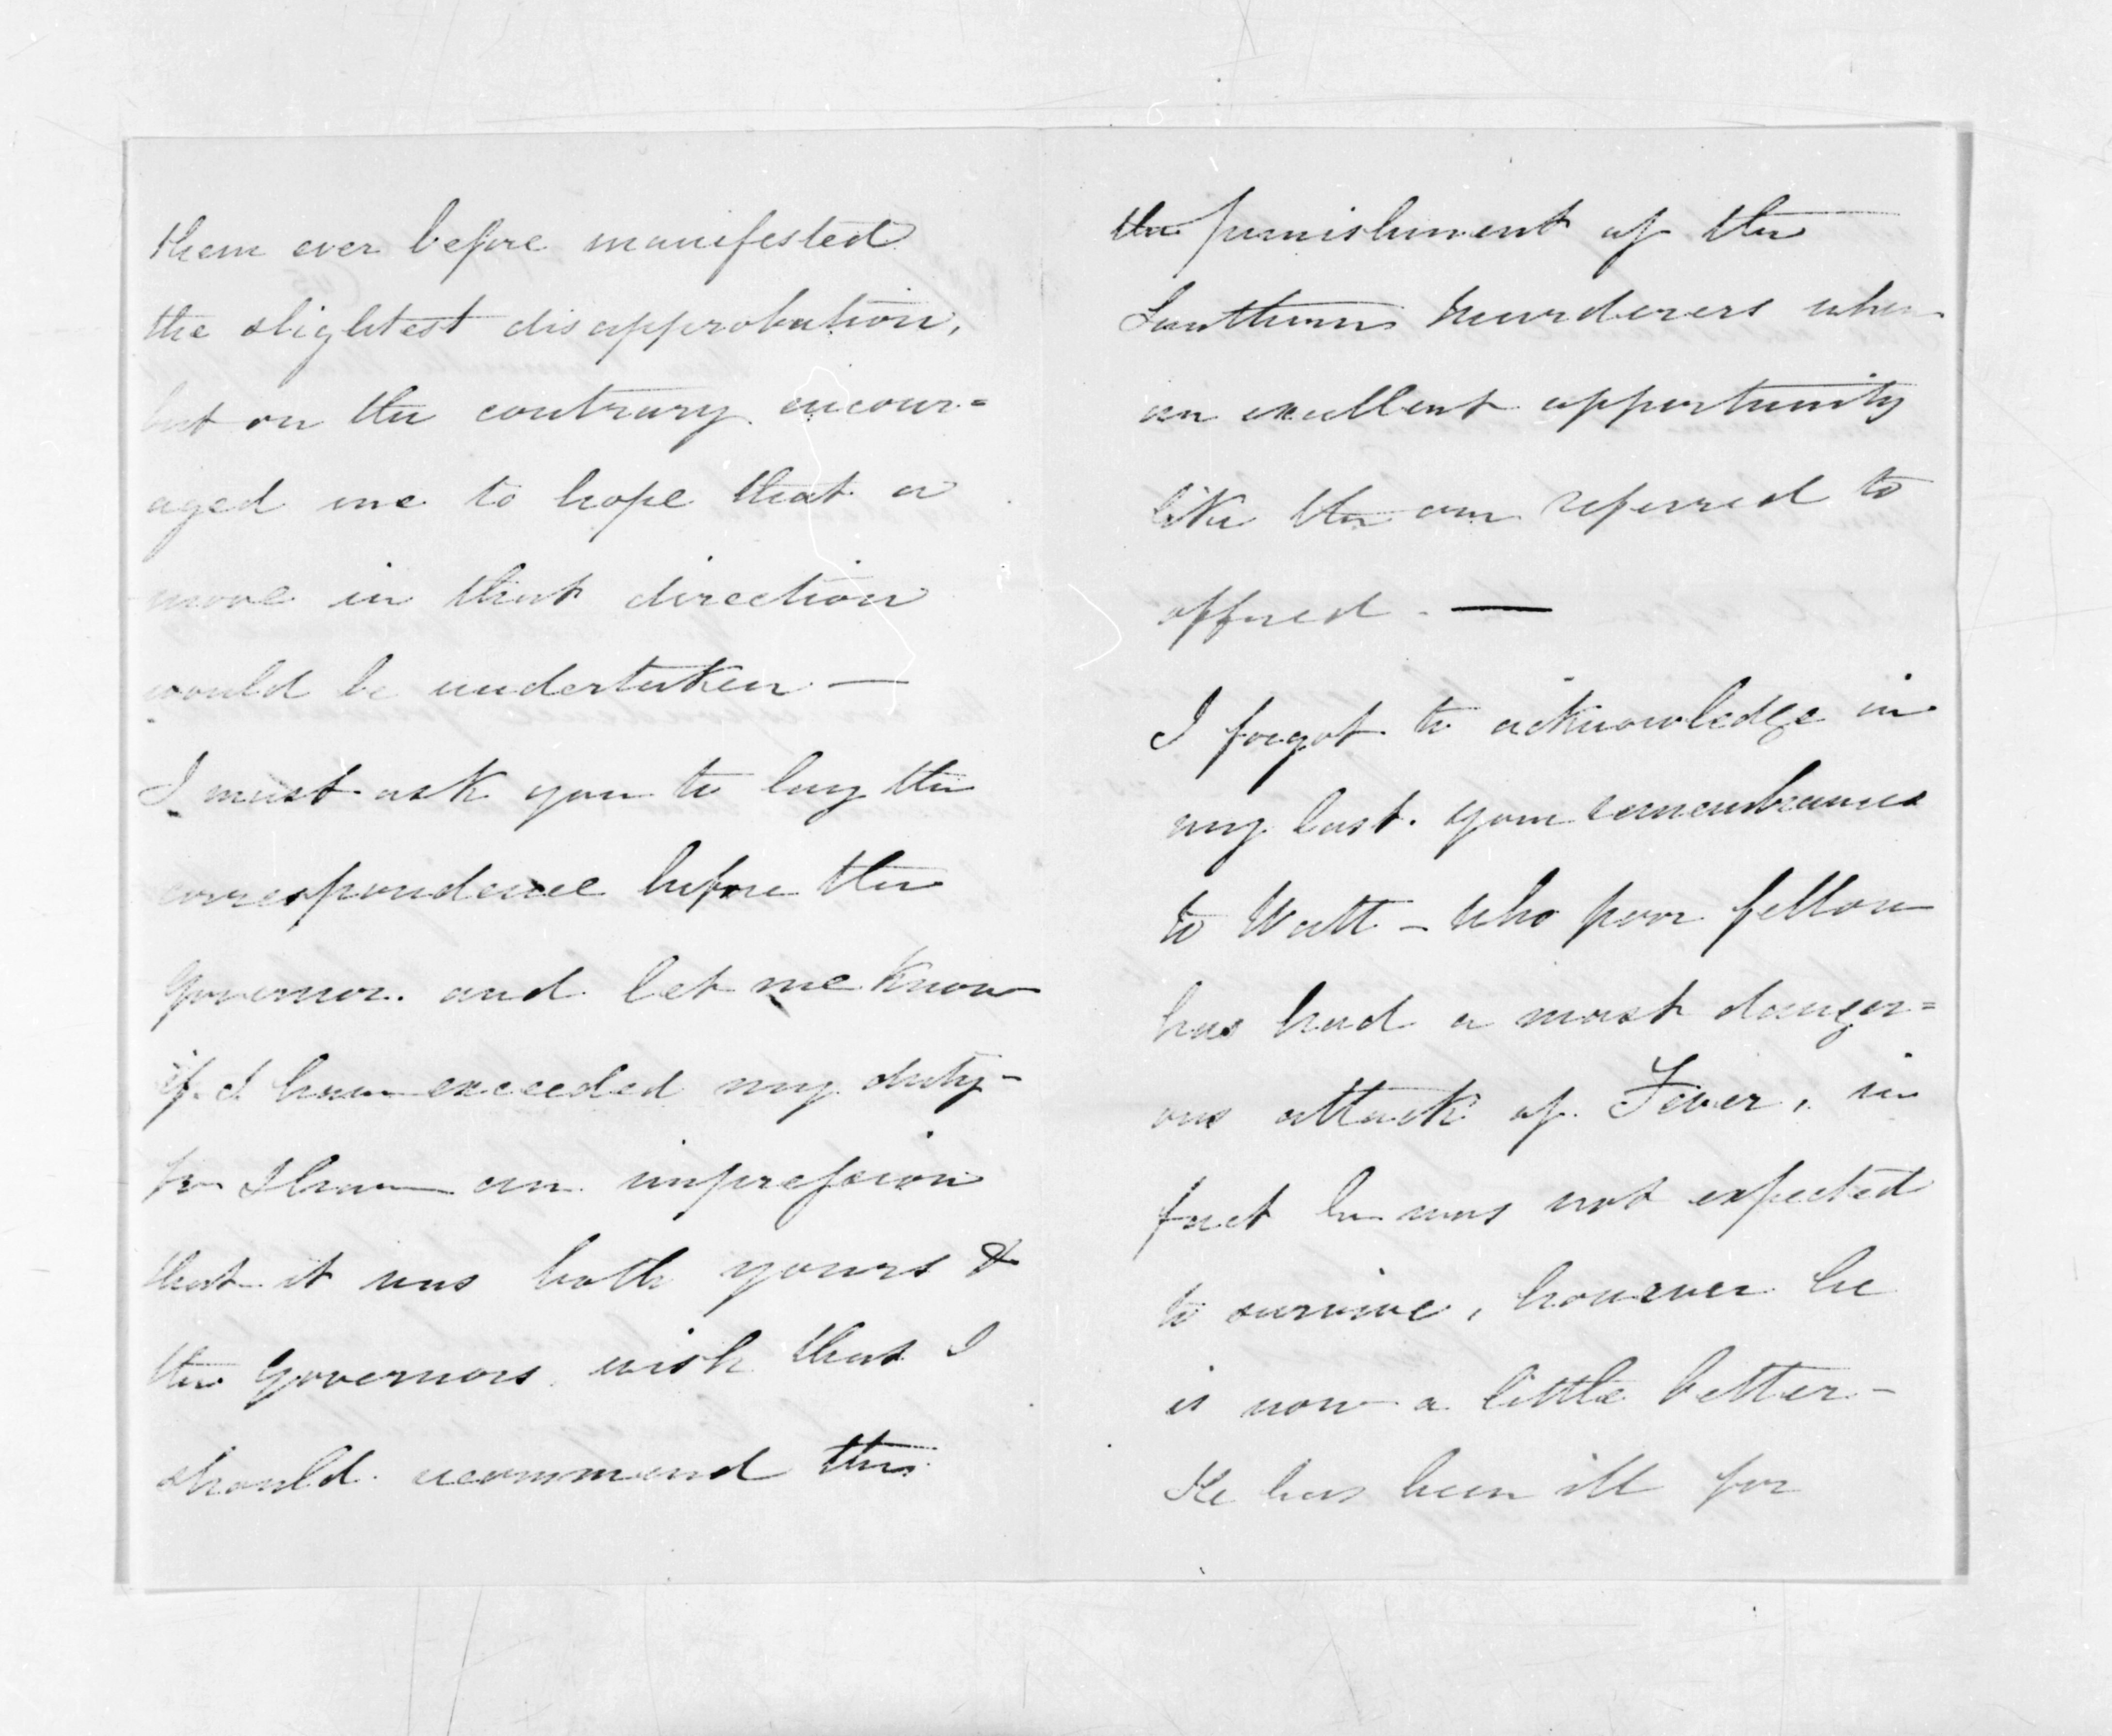 them ever before manifested
the slightest disapprobation,
but on the contrary encour=
aged me to hope that a
move in that direction
would be undertaken —
I must ask you to lay the
correspondence before the
Governor. and let me know
if I have exceeded my duty -
for I have an impression
that it was both yours &
the Governors wish that I
should recommend this
the punishment of the
Southern Murderers when
an excellent opportunity
like the one referred to
offered. —
I forgot to acknowledge in
my last. your remembrances
to Watt - who poor fellow
has had a most danger=
ous attack of Fever, in
fact he was not expected
to survive, however he
is now a little better -
He has been ill for